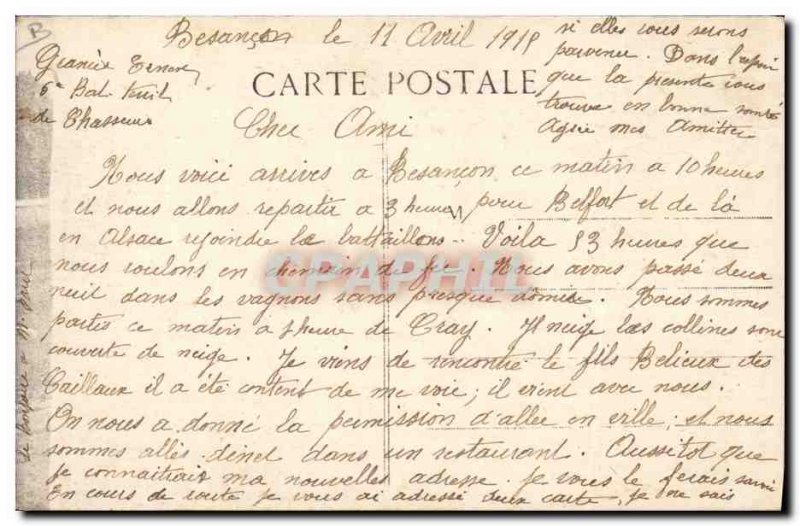 B
Besançon le 11 Avril 1918
6e Bat
de Chasseurs
CARTE POSTALE
Cher Ami
Nous voici arrives a Besançon ce matin a 10 heures
et nous allons repartir a 3 heures pour Belfort et de là
en Alsace rejoindre le battaillons. Voila 53 heures que
nous roulons en chemain de fer. Nous avons passé deux
nuit dans les vagnons sans presque domir. Nous sommes
partis ce matin a heure de Gray. Il neige les collines sont
couverte de neige. Je viens de rencontre le fils Belieux des
Caillaux il a été content de me voir; il vient avec nous.
On nous a donné la permission d'aller en ville; et nous
sommes allés diner dans un restaurant. Aussitot que
je connaitrais ma nouvelles adresse je vous le ferais savoir
En cours de route je vous ai adressé deux carte, je ne sais
si elles vous serons
parvenu. Dans l'espoir
que la presente vous
trouve en bonne santé
Agrée mes Amities
CPAPHIL